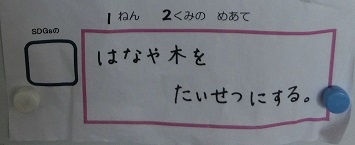 1 ねん 2くみの めあて
SDGsの
はなや木を
たいせつにする。